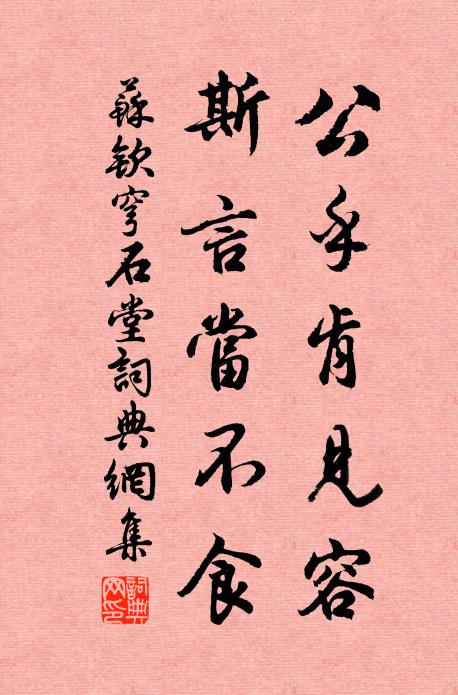 公乎肯見容
斯言當不食
蘇欽穹石堂詞典網集
詞典網印